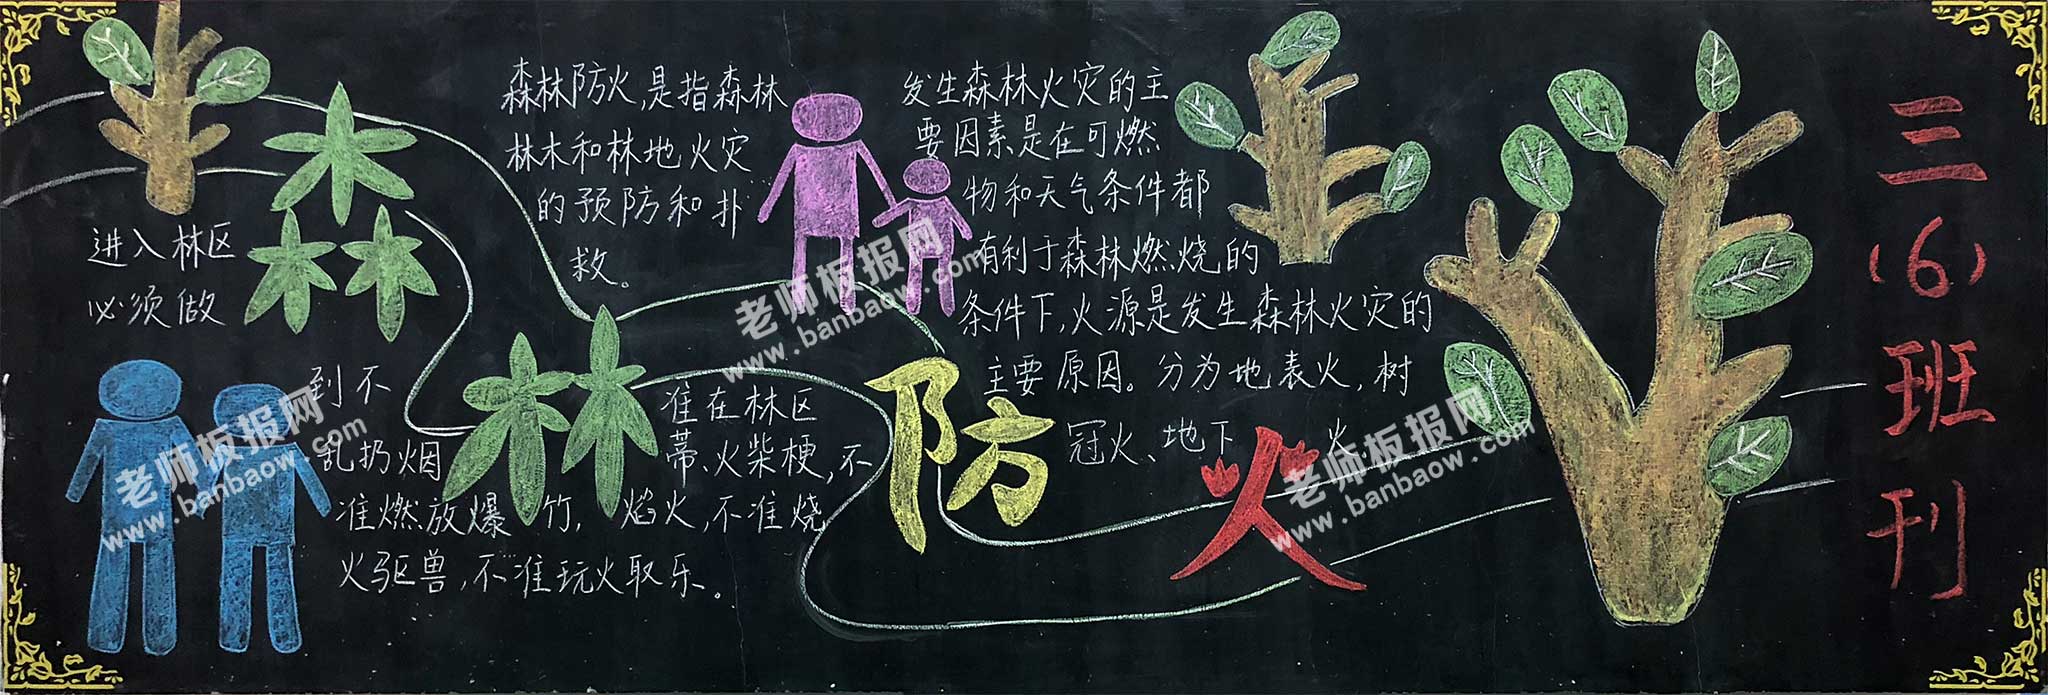 森林防火
森林防火,是指森林
林木和林地火灾
的预防和扑
救。
发生森林火灾的主
要因素是在可燃
物和天气条件都
有利于森林燃烧的
条件下,火源是发生森林火灾的
主要原因。分为地表火,树
冠火、地下火
进入林区
必须做
到不 准在林区
乱扔烟 蒂、火柴梗,不
准燃放爆竹,焰火,不准烧
火驱兽,不准玩火取乐。
三(6)班刊
老师板报网
www.banbaow.com
老师板报网
www.banbaow.com
老师板报网
www.banbaow.com